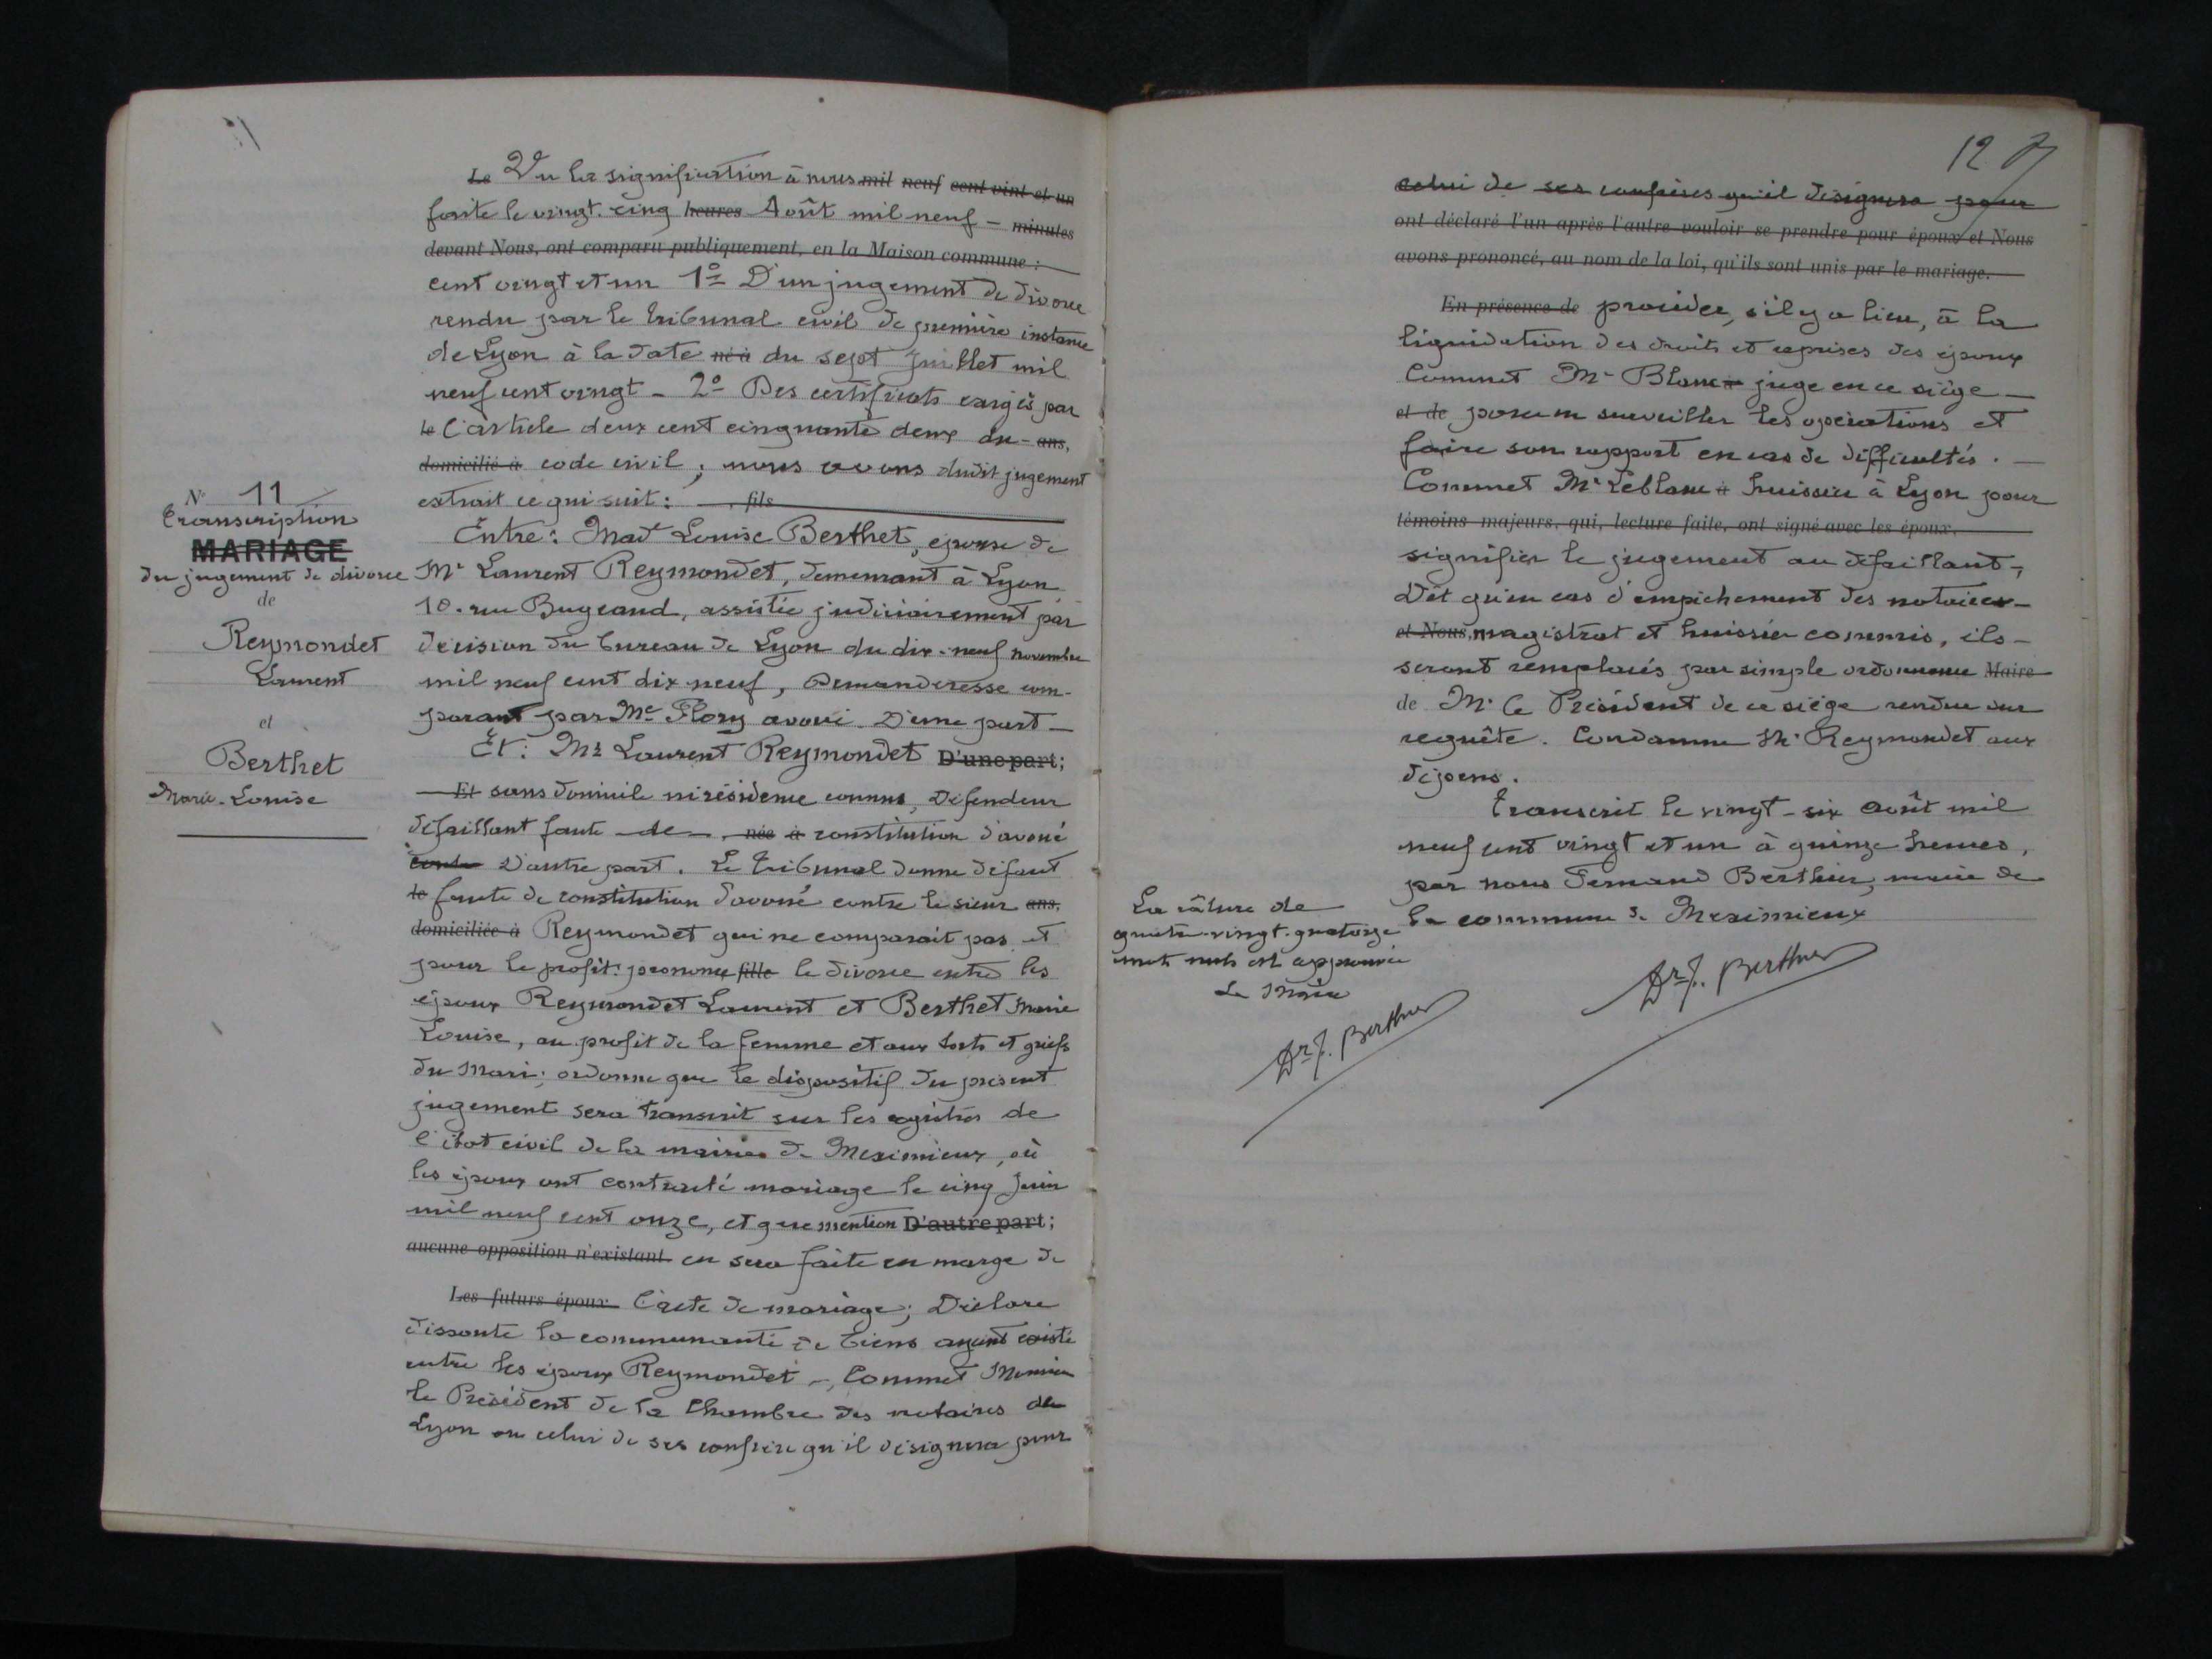 N° 11
Transcription
MARIAGE
du jugement de divorce
de
Reymondet
Laurent
et
Berthet
Marie-Louise
Le Vu la signification à nous mil neuf cent vint et un
faite le vingt-cinq heures Août mil neuf - minutes
devant Nous, ont comparu publiquement, en la Maison commune :
cent vingt et un 1° D'un jugement de divorce
rendu par le tribunal civil de première instance
de Lyon à la date né à du sept Juillet mil
neuf cent vingt - 2° Des certificats exigés par
le l'article deux cent cinquante deux du - ans,
domicilié à code civil ; nous avons dudit jugement
extrait ce qui suit : , fils
Entre : Mad^e Louise Berthet, épouse de
Mr Laurent Reymondet, demeurant à Lyon
10. rue Bugeaud, assistée judiciairement par
décision du bureau de Lyon du dix-neuf novembre
mil neuf cent dix neuf, Demanderesse com-
parant par Me Flory avoué D'une part -
Et : Mr Laurent Reymondet D'une part ;
Et sans domicile ni résidence connus, Défendeur
défaillant faute de , née à constitution d'avoué
D'autre part. Le Tribunal donne défaut
le faute de constitution d'avoué contre le sieur ans,
domiciliée à Reymondet qui ne comparait pas et
pour le profit prononce fille le divorce entre les
époux Reymondet Laurent et Berthet Marie
Louise, au profit de la femme et aux torts et griefs
du Mari ; ordonne que le dispositif du présent
jugement sera transcrit sur les registres de
l'état civil de la mairie de Meximieux, où
les époux ont contracté mariage le cinq Juin
mil neuf cent onze, et que mention D'autre part ;
aucune opposition n'existant en sera faite en marge de
Les futurs époux l'acte de mariage ; Déclare
dissoute la communauté de biens ayant existé
entre les époux Reymondet -, Commet Monsieur
le Président de la Chambre des notaires de
Lyon ou celui de ses confrère qu'il désignera pour
12
celui de ses confrères qu'il désignera pour
ont déclaré l'un après l'autre vouloir se prendre pour époux et Nous
avons prononcé, au nom de la loi, qu'ils sont unis par le mariage.
En présence de procéder, s'il y a lieu, à la
liquidation des droits et reprises des époux
Commet Mr Blanc à juge en ce siège -
et de pour en surveiller les opérations et
faire son rapport en cas de difficultés. -
Commet Mr Leblanc à huissier à Lyon pour
témoins majeurs, qui, lecture faite, ont signé avec les époux.
signifier le jugement au défaillant,
Dit qu'en cas d'empêchement des notaires -
et Nous, magistrat et huissier commis, ils -
seront remplacés par simple ordonnance Maire
de Mr le Président de ce siège rendue sur
requête. Condamne Mr Reymondet aux
dépens.
Transcrit le vingt-six août mil
neuf cent vingt et un à quinze heures,
par nous Fernand Berthier, maire de
la commune de Meximieux
Dr F. Berthier
La râture de
quatre-vingt-quatorze
mots nuls est approuvée
Le Maire
Dr F. Berthier